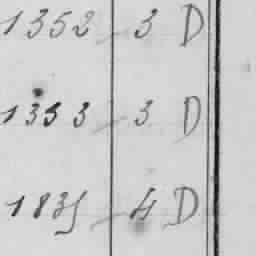 1352 3 D
1353 3 D
1835 4 D